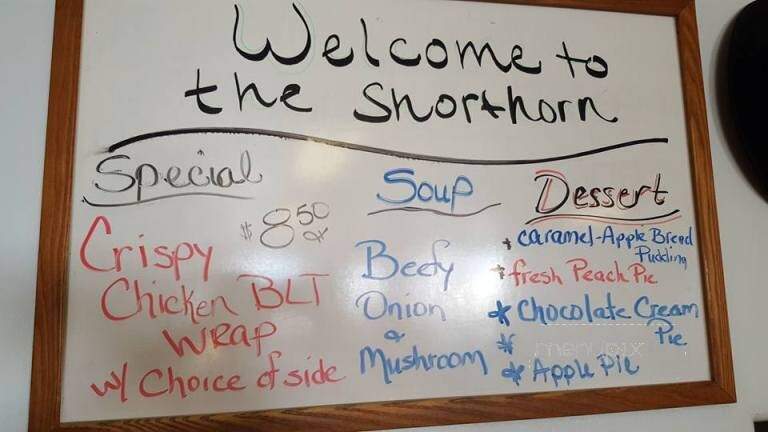 Welcome to
the Shorthorn
Special
$8.50
Crispy
Chicken BLT
Wrap
w/ Choice of side
Soup
Beefy
Onion
&
Mushroom
Dessert
* caramel-Apple Bread
Pudding
* fresh Peach Pie
* Chocolate Cream
Pie
*
* Apple Pie